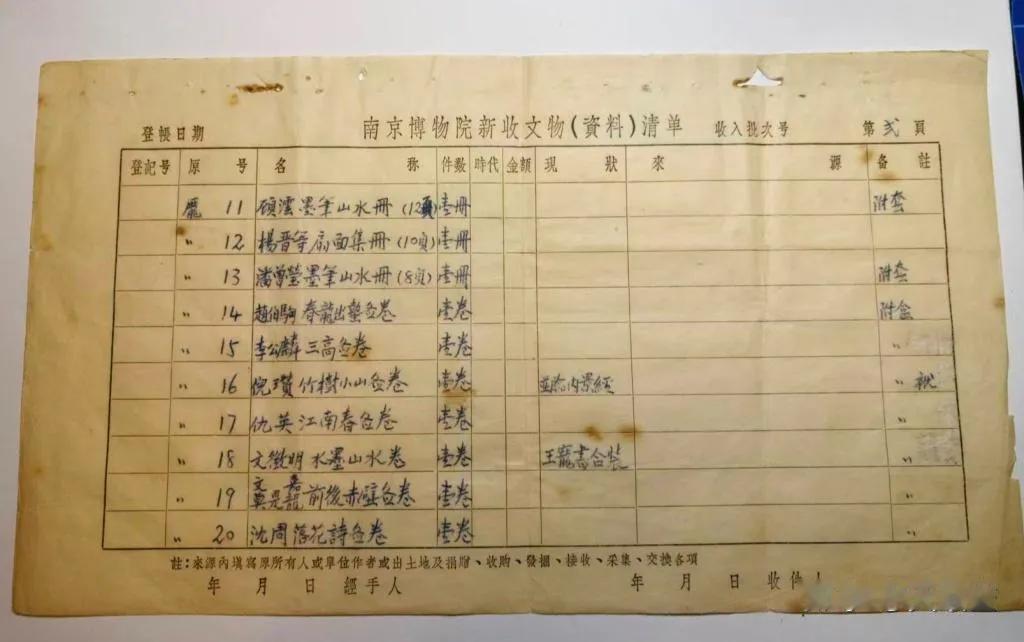 南京博物院新收文物(資料)清单
登帳日期 收入批次号 第弍頁
登記号 原号 名称 件数 時代 金額 現狀 來源 备註
龐 11 顾澐墨笔山水冊(12頁) 壹冊 附套
〃 12 楊晋等扇面集冊(10頁) 壹冊
〃 13 潘曾瑩墨笔山水冊(8頁) 壹冊 附套
〃 14 趙伯駒春龍出蟄仝卷 壹卷 附仝
〃 15 李公麟三高仝卷 壹卷 〃
〃 16 倪瓚竹樹小山仝卷 壹卷 内景經 〃
〃 17 仇英江南春仝卷 壹卷 〃
〃 18 文徵明水墨山水卷 壹卷 王寵書合裝 〃
〃 19 文嘉莫是龍前後赤壁仝卷 壹卷 〃
〃 20 沈周落花詩仝卷 壹卷 〃
註:來源内填寫原所有人或單位作者或出土地及捐贈、收購、發掘、接收、采集、交換各項
年 月 日 經手人 年 月 日 收件人